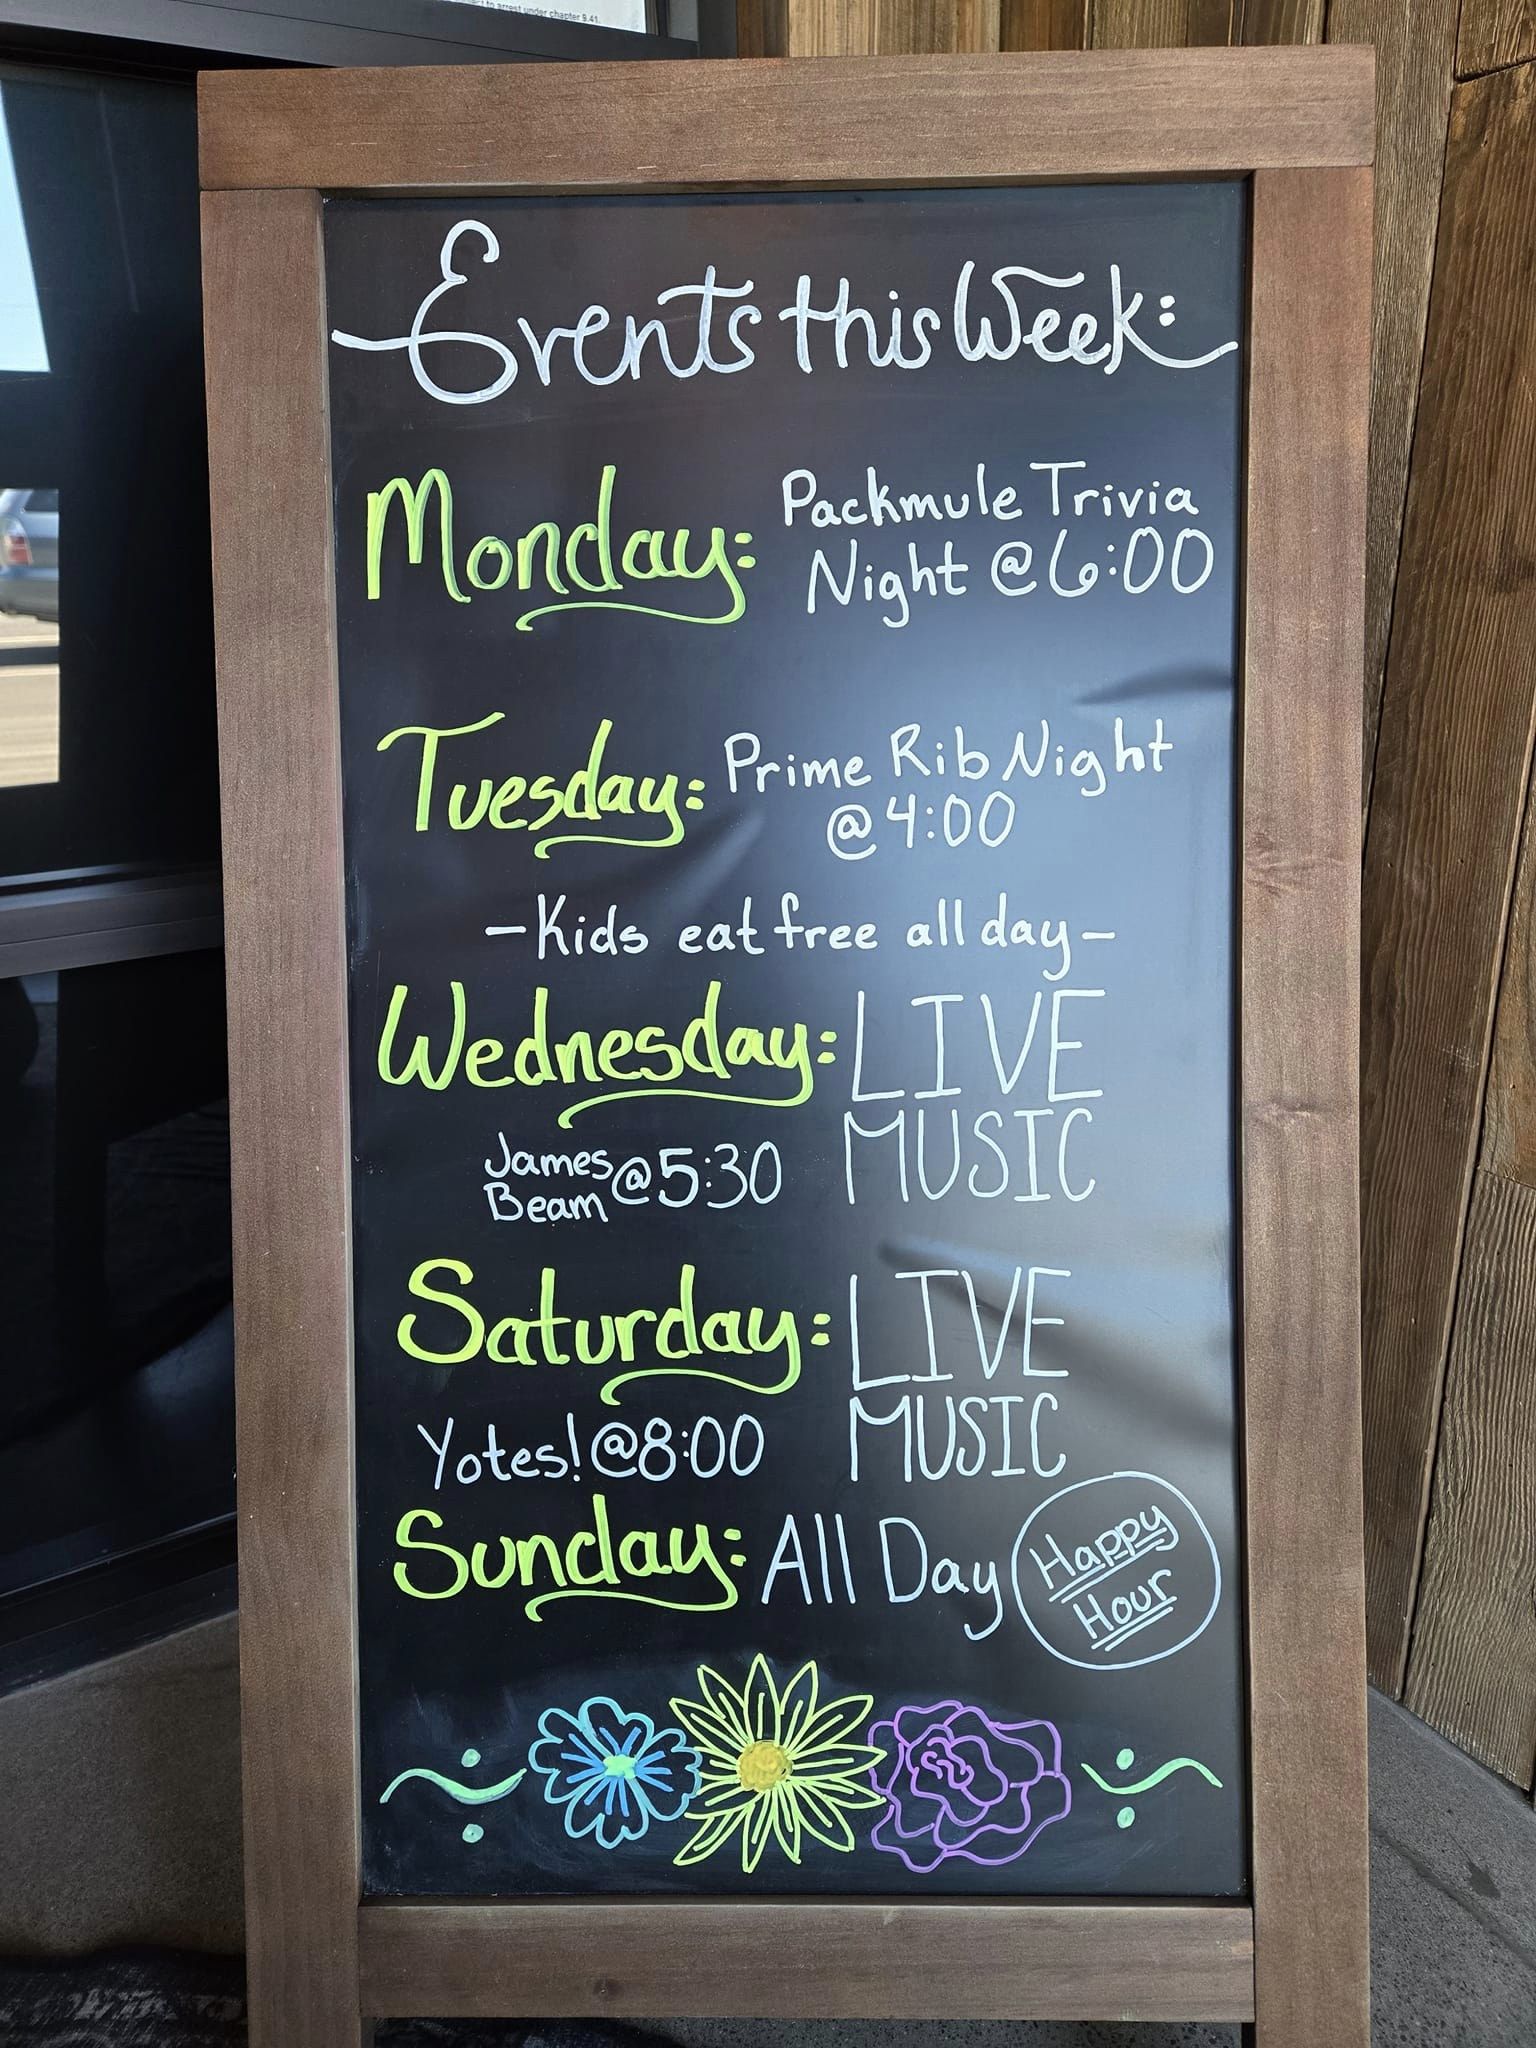 ject to arrest under chapter 9.41.
Events this Week:
Monday: Packmule Trivia
Night @ 6:00
Tuesday: Prime Rib Night
@ 4:00
-Kids eat free all day-
Wednesday: LIVE
MUSIC
James
Beam @ 5:30
Saturday: LIVE
MUSIC
Yotes! @ 8:00
Sunday: All Day Happy
Hour